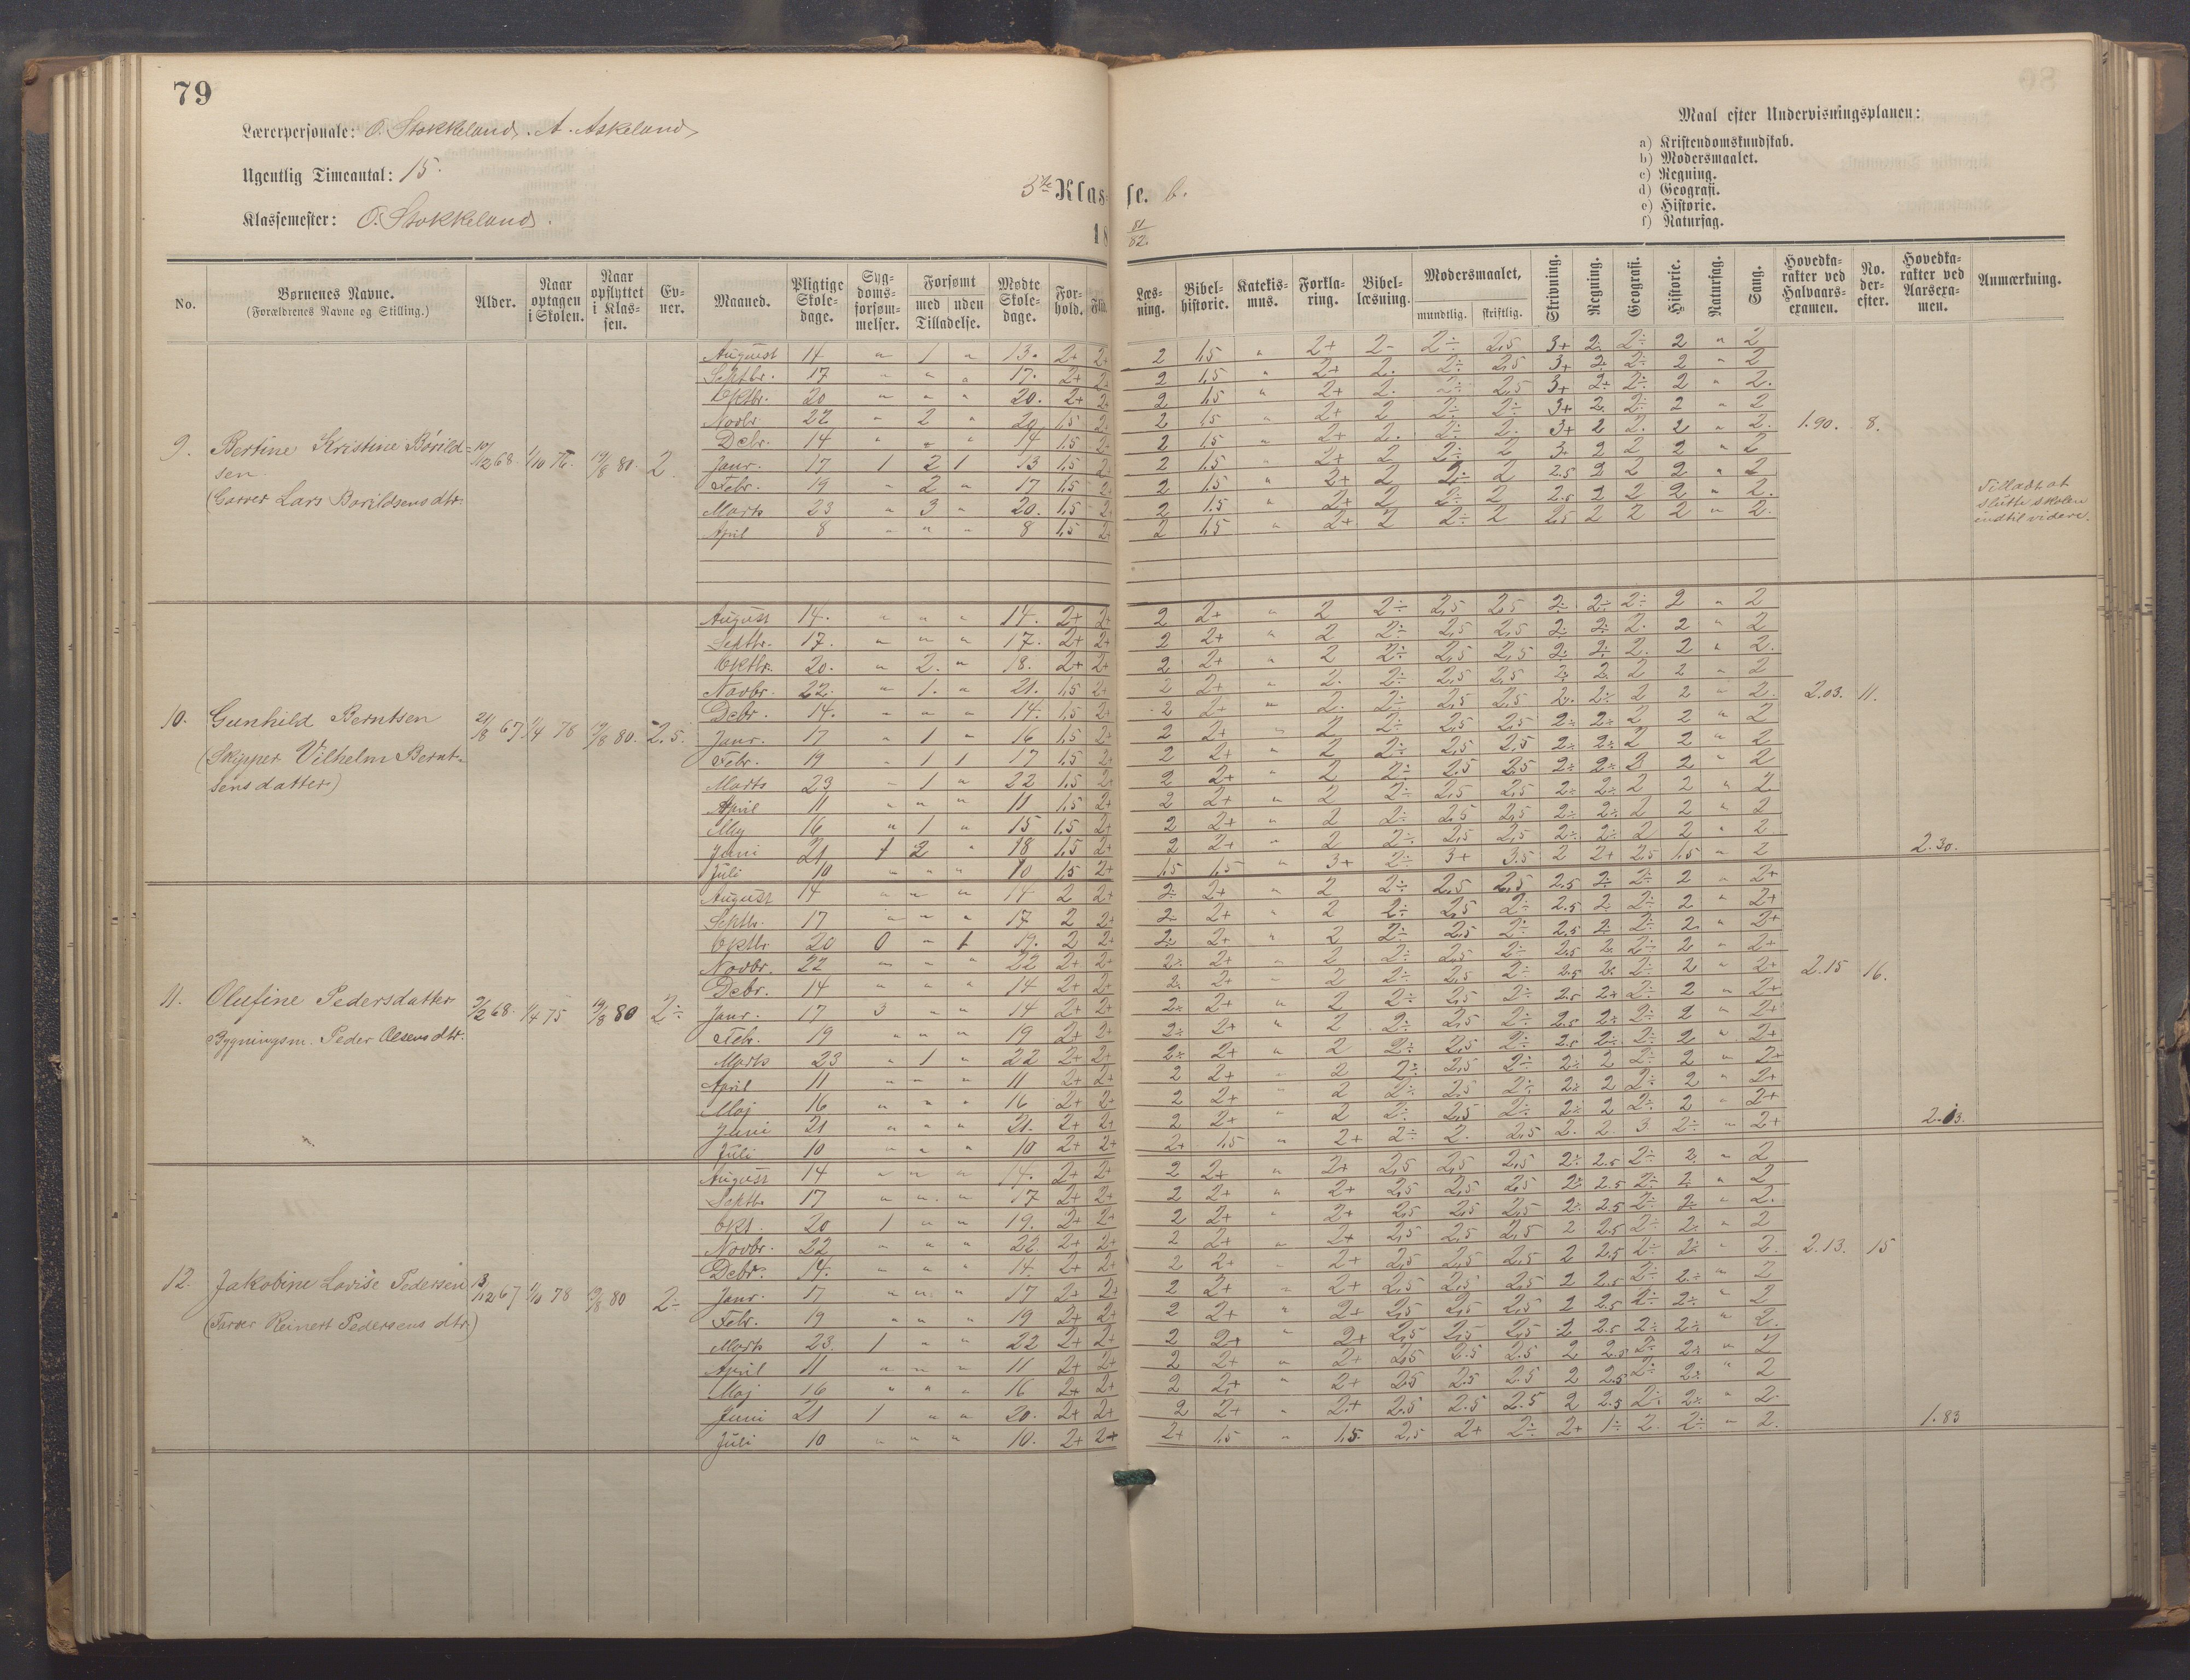 79
Lærerpersonale: O. Stokkeland. A. Askeland
Ugentlig Timeantal: 15.
Klassemester: O. Stokkeland.
5te Klasse. b.
18 81/82.
Maal efter Undervisningsplanen:
a) Kristendomskundskab.
b) Modersmaalet.
c) Regning.
d) Geografi.
e) Historie.
f) Naturfag.
No. | Børnenes Navne. (Forældrenes Navne og Stilling.) | Alder. | Naar optagen i Skolen. | Naar opflyttet i Klassen. | Evner. | Maaned. | Pligtige Skoledage. | Sygdomsforsømmelser. | Forsømt med uden Tilladelse. | Mødte Skoledage. | Forhold. | Flid. | Læsning. | Bibelhistorie. | Katekismus. | Forklaring. | Bibellæsning. | Modersmaalet, mundtlig. skriftlig. | Skrivning. | Regning. | Geografi. | Historie. | Naturfag. | Sang. | Hovedkarakter ved Halvaarsexamen. | No. derefter. | Hovedkarakter ved Aarsexamen. | Anmærkning.
9. Bertine Kristine Borildsen
(Garver Lars Borildsens dtr.
10/12 68. 1/10 76. 19/8 80. 2
August 14 " 1 " 13. 2+ 2+ 2 1,5 " 2+ 2- 2÷ 2,5 3+ 2 2÷ 2 " 2
Septbr. 17 " " " 17. 2+ 2+ 2 1,5 " 2+ 2. 2÷ 2,5 3+ 2 2÷ 2 " 2
Oktbr. 20 " " " 20. 2+ 2+ 2 1,5 " 2+ 2. 2÷ 2,5 3+ 2÷ 2÷ 2 " 2.
Novbr. 22 " 2 " 20 1,5 2+ 2 1,5 " 2+ 2 2÷ 2÷ 3+ 2. 2÷ 2 " 2
Debr. 14 " " " 14 1,5 2+ 2 1,5 " 2+ 2. 2÷ 2. 3+ 2 2. 2 " 2. 1.90. 8.
Janr. 17 1 2 1 13 1,5 2+ 2 1,5 " 2+ 2 2÷ 2 3. 2 2 2 " 2
Febr. 19 " 2 " 17 1,5 2+ 2 1,5 " 2+ 2 2÷ 2 2.5 2 2 2 " 2
Marts 23 " 3 " 20. 1,5 2+ 2 1.5 " 2+ 2 2÷ 2 2.5 2 2 2 " 2.
April 8 " " " 8 1,5 2+ 2 1,5 " 2+ 2 2÷ 2 2,5 2 2 2 " 2.
Tilladt at
slutte skolen
indtil videre.
10. Gunhild Berntsen
(Skipper Vilhelm Berntsens datter)
21/8 67. 1/4 78 19/8 80. 2,5.
August 14. " " " 14. 2+ 2+ 2 2+ " 2 2÷ 2,5 2,5 2÷ 2÷ 2÷ 2 " 2
Septbr. 17. " " " 17. 2+ 2+ 2 2+ " 2 2÷ 2,5 2,5 2÷ 2÷ 2. 2 " 2
Oktbr. 20. " 2. " 18. 2+ 2+ 2 2+ " 2 2÷ 2,5 2,5 2÷ 2÷ 2. 2 " 2.
Novbr. 22. " 1. " 21. 1,5 2+ 2 2+ " 2. 2÷ 2,5 2,5 2. 2. 2 2 " 2
Debr. 14. " " " 14. 1,5 2+ 2 2+ " 2. 2÷ 2,5 2,5 2. 2÷ 2 2 " 2. 2.03. 11.
Janr. 17 " 1 " 16 1,5 2+ 2 2+ " 2 2÷ 2,5 2,5 2÷ 2÷ 2 2 " 2
Febr. 19 " 1 1 17 1,5 2+ 2 2+ " 2 2÷ 2,5 2,5 2÷ 2÷ 2 2 " 2
Marts 23 " 1 " 22 1,5 2+ 2 2+ " 2 2÷ 2,5 2,5 2÷ 2÷ 2 2 " 2
April 11 " " " 11 1,5 2+ 2 2+ " 2 2÷ 2,5 2,5 2÷ 2÷ 2 2 " 2.
Maj 16 " 1 " 15 1,5 2+ 2 2+ " 2 2÷ 2,5 2,5 2÷ 2÷ 2 2 " 2
Juni 21 1 2 " 18 1,5 2+ 2 2+ " 2 2÷ 2,5 2,5 2÷ 2÷ 2 2 " 2
Juli 10 " " " 10 1,5 2+ 1,5 1,5 " 3+ 2÷ 3+ 3,5 2 2+ 2,5 1,5 " 2 2.30.
11. Olufine Pedersdatter
Bygningsm. Peder Olsens dtr.
9/2 68. 1/4 75 19/8 80 2÷
August 14 " " " 14 2 2+ 2÷ 2+ " 2 2÷ 2,5 2,5 2.5 2÷ 2÷ 2 " 2+
Septbr. 17 " " " 17 2 2+ 2÷ 2+ " 2 2÷ 2,5 2÷ 2.5 2 2÷ 2 " 2+
Oktbr. 20 0 " 1 19. 2 2+ 2÷ 2+ " 2 2÷ 2,5 2÷ 2,5 2 2÷ 2 " 2+
Novbr. 22 " " " 22 2+ 2+ 2÷ 2+ " 2 2÷ 2,5 2÷ 2,5 2. 2÷ 2 " 2+
Debr. 14 " " " 14 2+ 2+ 2. 2+ " 2 2÷ 2,5 2÷ 2.5 2. 2÷ 2 " 2+ 2.15 16.
Janr. 17 3 " " 14 2+ 2+ 2÷ 2+ " 2 2÷ 2,5 2÷ 2.5 2+ 2÷ 2 " 2+
Febr. 19 " " " 19 2+ 2+ 2÷ 2+ " 2 2÷ 2,5 2÷ 2.5 2÷ 2÷ 2 " 2+
Marts 23 " 1 " 22 2+ 2+ 2÷ 2+ " 2 2÷ 2,5 2÷ 2.5 2÷ 2÷ 2 " 2+
April 11 " " " 11 2+ 2+ 2 2+ " 2 2÷ 2,5 2÷ 2÷ 2 2÷ 2 " 2+
Maj 16 " " " 16 2+ 2+ 2 2+ " 2 2÷ 2,5 2÷ 2÷ 2 2÷ 2 " 2+
Juni 21 " " " 21. 2+ 2+ 2 2+ " 2 2÷ 2,5 2÷ 2÷ 2 2÷ 2 " 2+
Juli 10 " " " 10 2+ 2+ 2+ 1,5 " 2+ 2÷ 2. 2,5 2. 2. 3. 2÷ " 2+ 2.13.
12. Jakobine Lovise Pedersen
(Farver Reinert Pedersens dtr.)
13/12 67 1/10 78 19/8 80 2÷
August 14 " " " 14. 2+ 2+ 2 2+ " 2+ 2,5 2,5 2,5 2÷ 2.5 2÷ 2 " 2
Septb. 17 " " " 17 2+ 2+ 2 2+ " 2+ 2,5 2,5 2,5 2÷ 2.5 2÷ 2÷ " 2
Okt. 20 1 " " 19. 2+ 2+ 2 2+ " 2+ 2,5 2,5 2,5 2÷ 2.5 2÷ 2÷ " 2.
Novbr. 22 " " " 22. 2+ 2+ 2 2+ " 2+ 2,5 2,5 2,5 2 2.5 2÷ 2÷ " 2
Debr. 14. " " " 14 2+ 2+ 2 2+ " 2+ 2,5 2,5 2,5 2 2,5 2÷ 2÷ " 2. 2.13. 15
Janr. 17 " " " 17 2+ 2+ 2 2+ " 2+ 2,5 2,5 2,5 2 2.5 2÷ 2÷ " 2
Febr. 19 " " " 19 2+ 2+ 2 2+ " 2+ 2,5 2,5 2,5 2 2.5 2÷ 2÷ " 2
Marts 23. 1 " " 22 2+ 2+ 2 2+ " 2+ 2,5 2,5 2,5 2 2.5 2÷ 2÷ " 2.
April 11 " " " 11 2+ 2+ 2 2+ " 2+ 2,5 2.5 2.5 2 2.5 2÷ 2÷ " 2
Maj 16 " " " 16 2+ 2+ 2 2+ " 2+ 2,5 2.5 2.5 2 2.5 2÷ 2÷ " 2
Juni 21 1 " " 20. 2+ 2+ 2 2+ " 2+ 2.5 2.5 2.5 2 2.5 2÷ 2÷ " 2
Juli 10 " " " 10. 2+ 2+ 2+ 1,5 " 1,5. 2,5 2+ 2÷ 2+ 1÷ 2. 2÷ " 2. 1.83